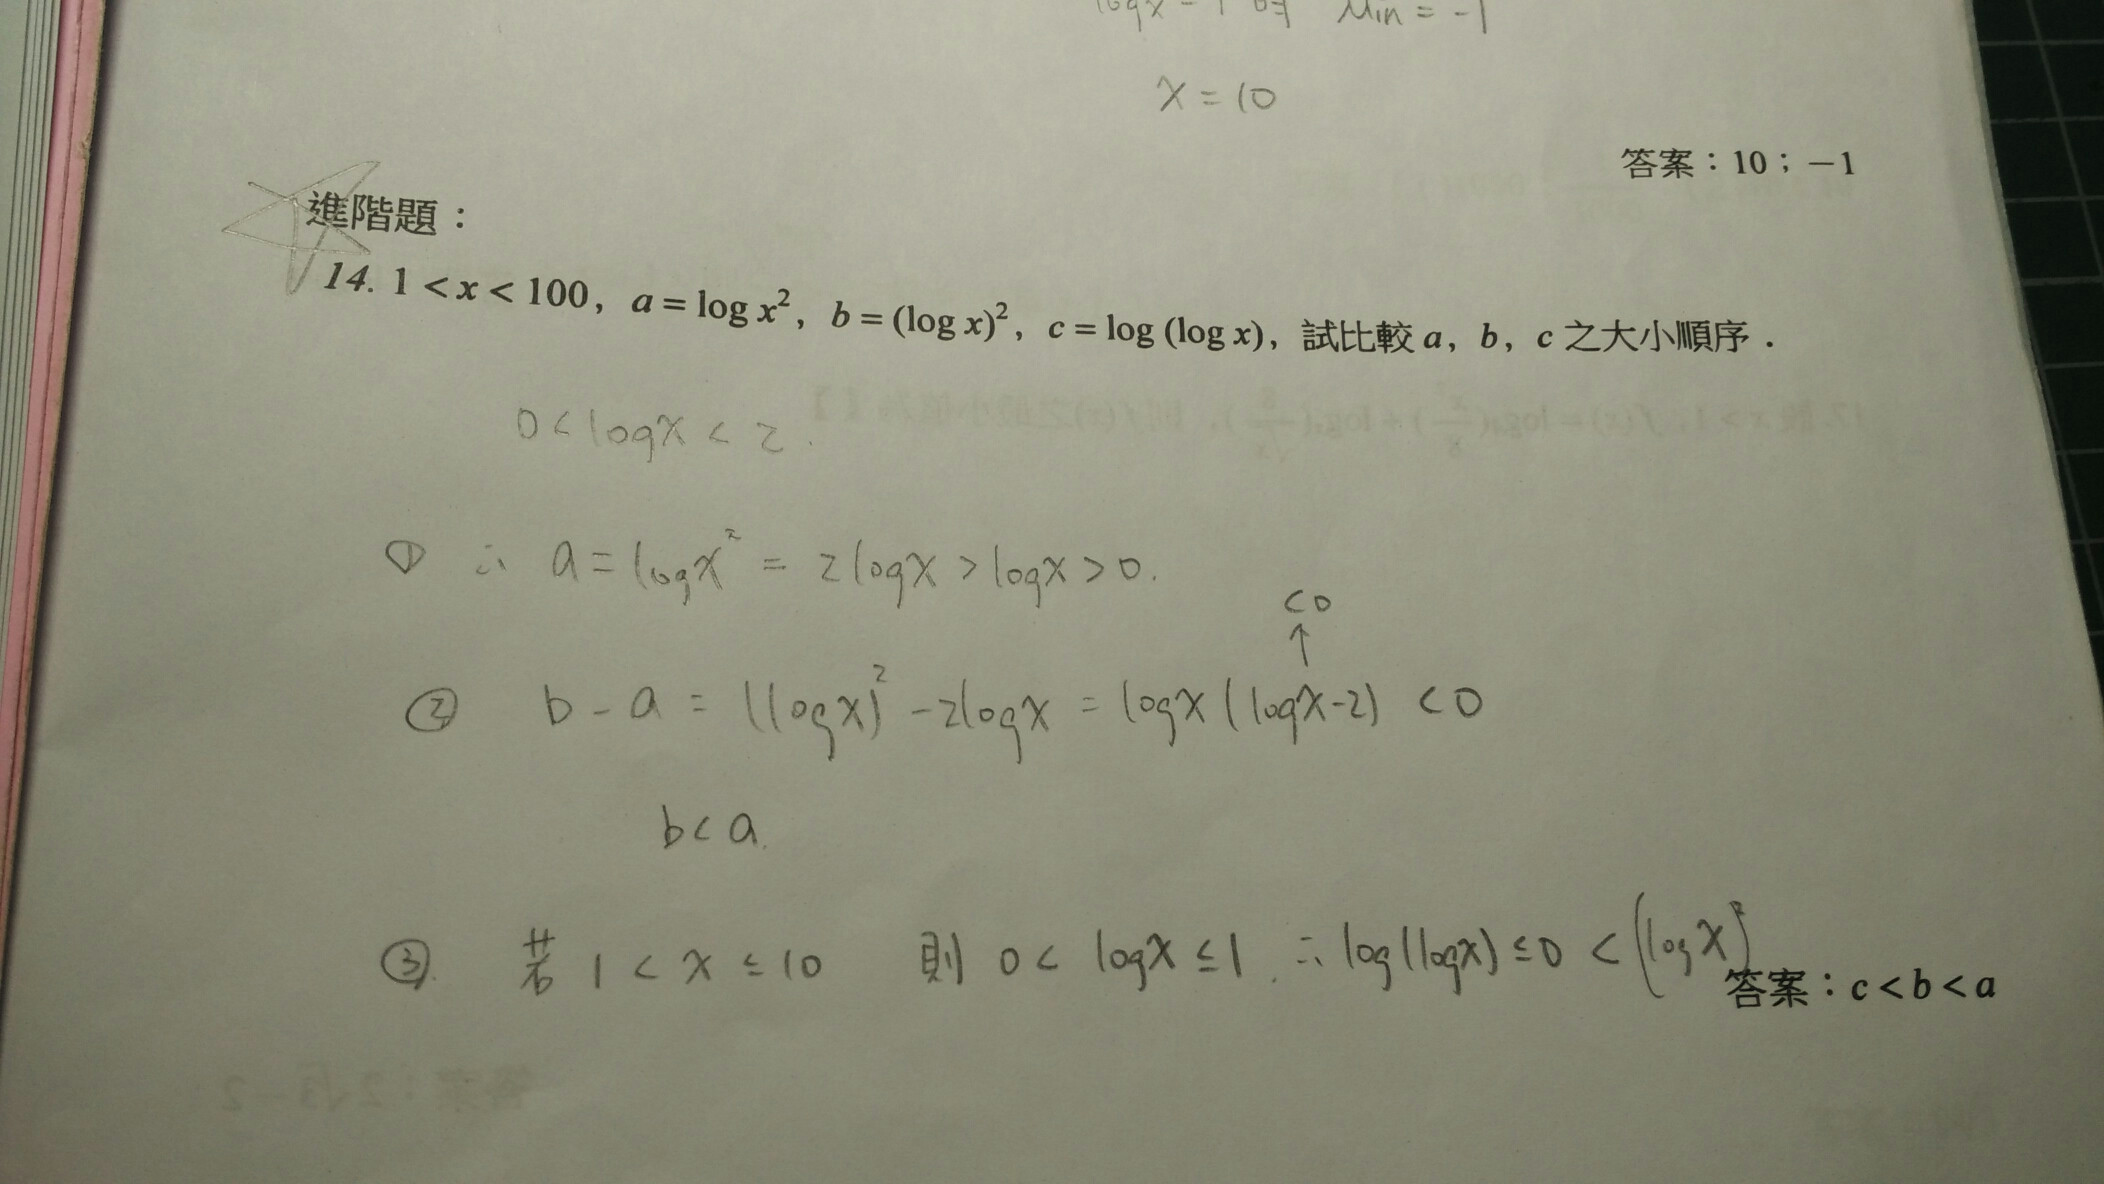 logx = 1 時 Min = -1
x = 10
答案：10；－1
進階題：
14. 1 < x < 100，a = log x²，b = (log x)²，c = log (log x)，試比較 a，b，c 之大小順序．
0 < logx < 2.
① ∴ a = logx² = 2logx > logx > 0.
<0
↑
② b - a = (logx)² - 2logx = logx (logx-2) < 0
b < a.
③. 若 1 < x ≤ 10 則 0 < logx ≤ 1. ∴ log(logx) ≤ 0 < (logx)²
答案：c < b < a
答案：2√3－2